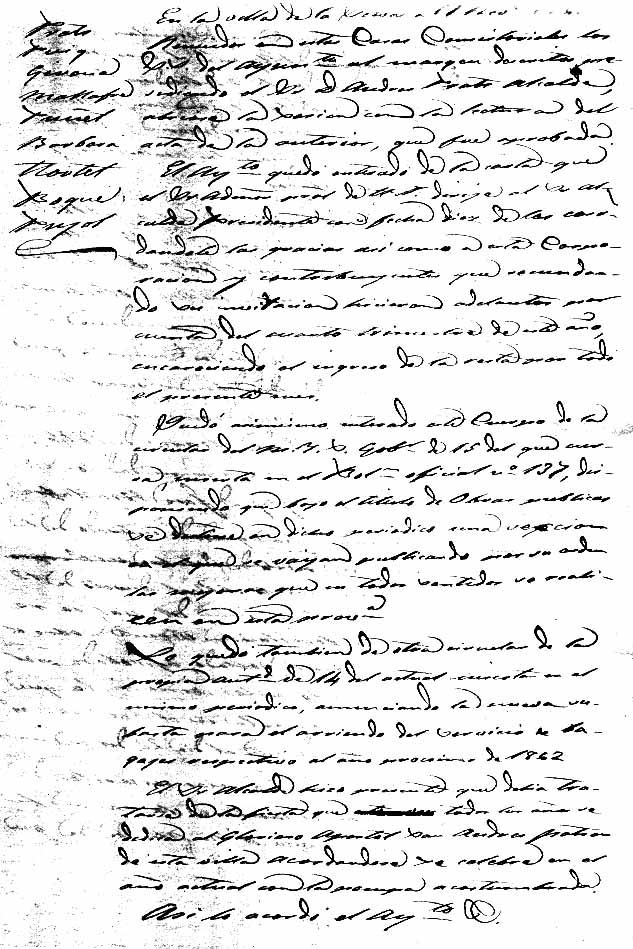 Prats
Puig
Gavania
Matheu
Barbara
Roque
Pujol
En la villa de la
Reunidos en estas Casas Consistoriales los
del Ayunto al margen descritos pre-
sidiendo el Sr. D. Andres Prats Alcalde,
abierta la sesion con la lectura del
acta de la anterior, que fue aprobada.
El Ayto quedó enterado de la carta que
el Sr. Admor pral de Hda dirije al Sr. Al-
calde Presidente con fecha diez de los cor.
dandole las gracias asi como a esta Corpo-
racion y contribuyentes que secundan-
do su invitacion hicieron adelantos por
cuenta del cuarto trimestre de este año,
encareciendo el ingreso de la resta para todo
el presente mes.
Quedó asimismo enterado este Cuerpo de la
circular del M. Y. S. Gobr de 15 del que cur-
sa, inserta en el Boln oficial nº 137, dis-
poniendo que bajo el titulo de Obras publicas
se destine en dicho periodico una seccion
en el que se vayan publicando por su orden
las mejoras que en todos sentidos se reali-
zen en esta prova
Lo quedó tambien de otra circular de la
propia autd de 14 del actual inserta en el
mismo periodico, anunciando la nueva su-
basta para el arriendo del servicio de ba-
gajes respectivo al año procsimo de 1862
El Sr. Alcalde hizo presente que debia tra-
tarse de la fiesta que todos los años se
dedica al Glorioso Apostol San Andres patron
de esta villa acordandose se celebre en el
año actual con la pompa acostumbrada.
Asi lo acordó el Ayto